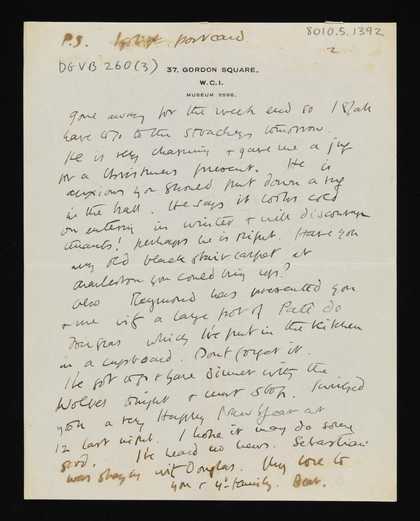 P.S. postcard
8010.5.1392
2
DGVB 260(3)
37, GORDON SQUARE,
W.C.1.
MUSEUM
gone away for the week end so I shall
have to go to the Stracheys tomorrow.
He is very charming & gave me a jug
for a Christmas present. He is
anxious you should put down a rug
in the hall. He says it looks cold
on entering in winter & will discourage
perhaps he is right. Have you
any old black stair carpet at
Charleston you could bring up?
Also Raymond has presented you
& me with a large pot of Paté de
which I've put in the kitchen
in a cupboard. Don't forget it.
I've got to go & have dinner with the
Wolves tonight & must stop. I wished
you a very Happy New Year at
12 last night. I hope it may do some
good. I've heard no news. Sebastian
was staying with Douglas. My love to
you & yr family. Bear.